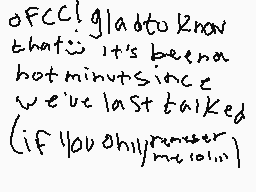 OFCC! glad to know
that :) it's been a
hot minute since
we've last talked
(if you only remember
me lol...)